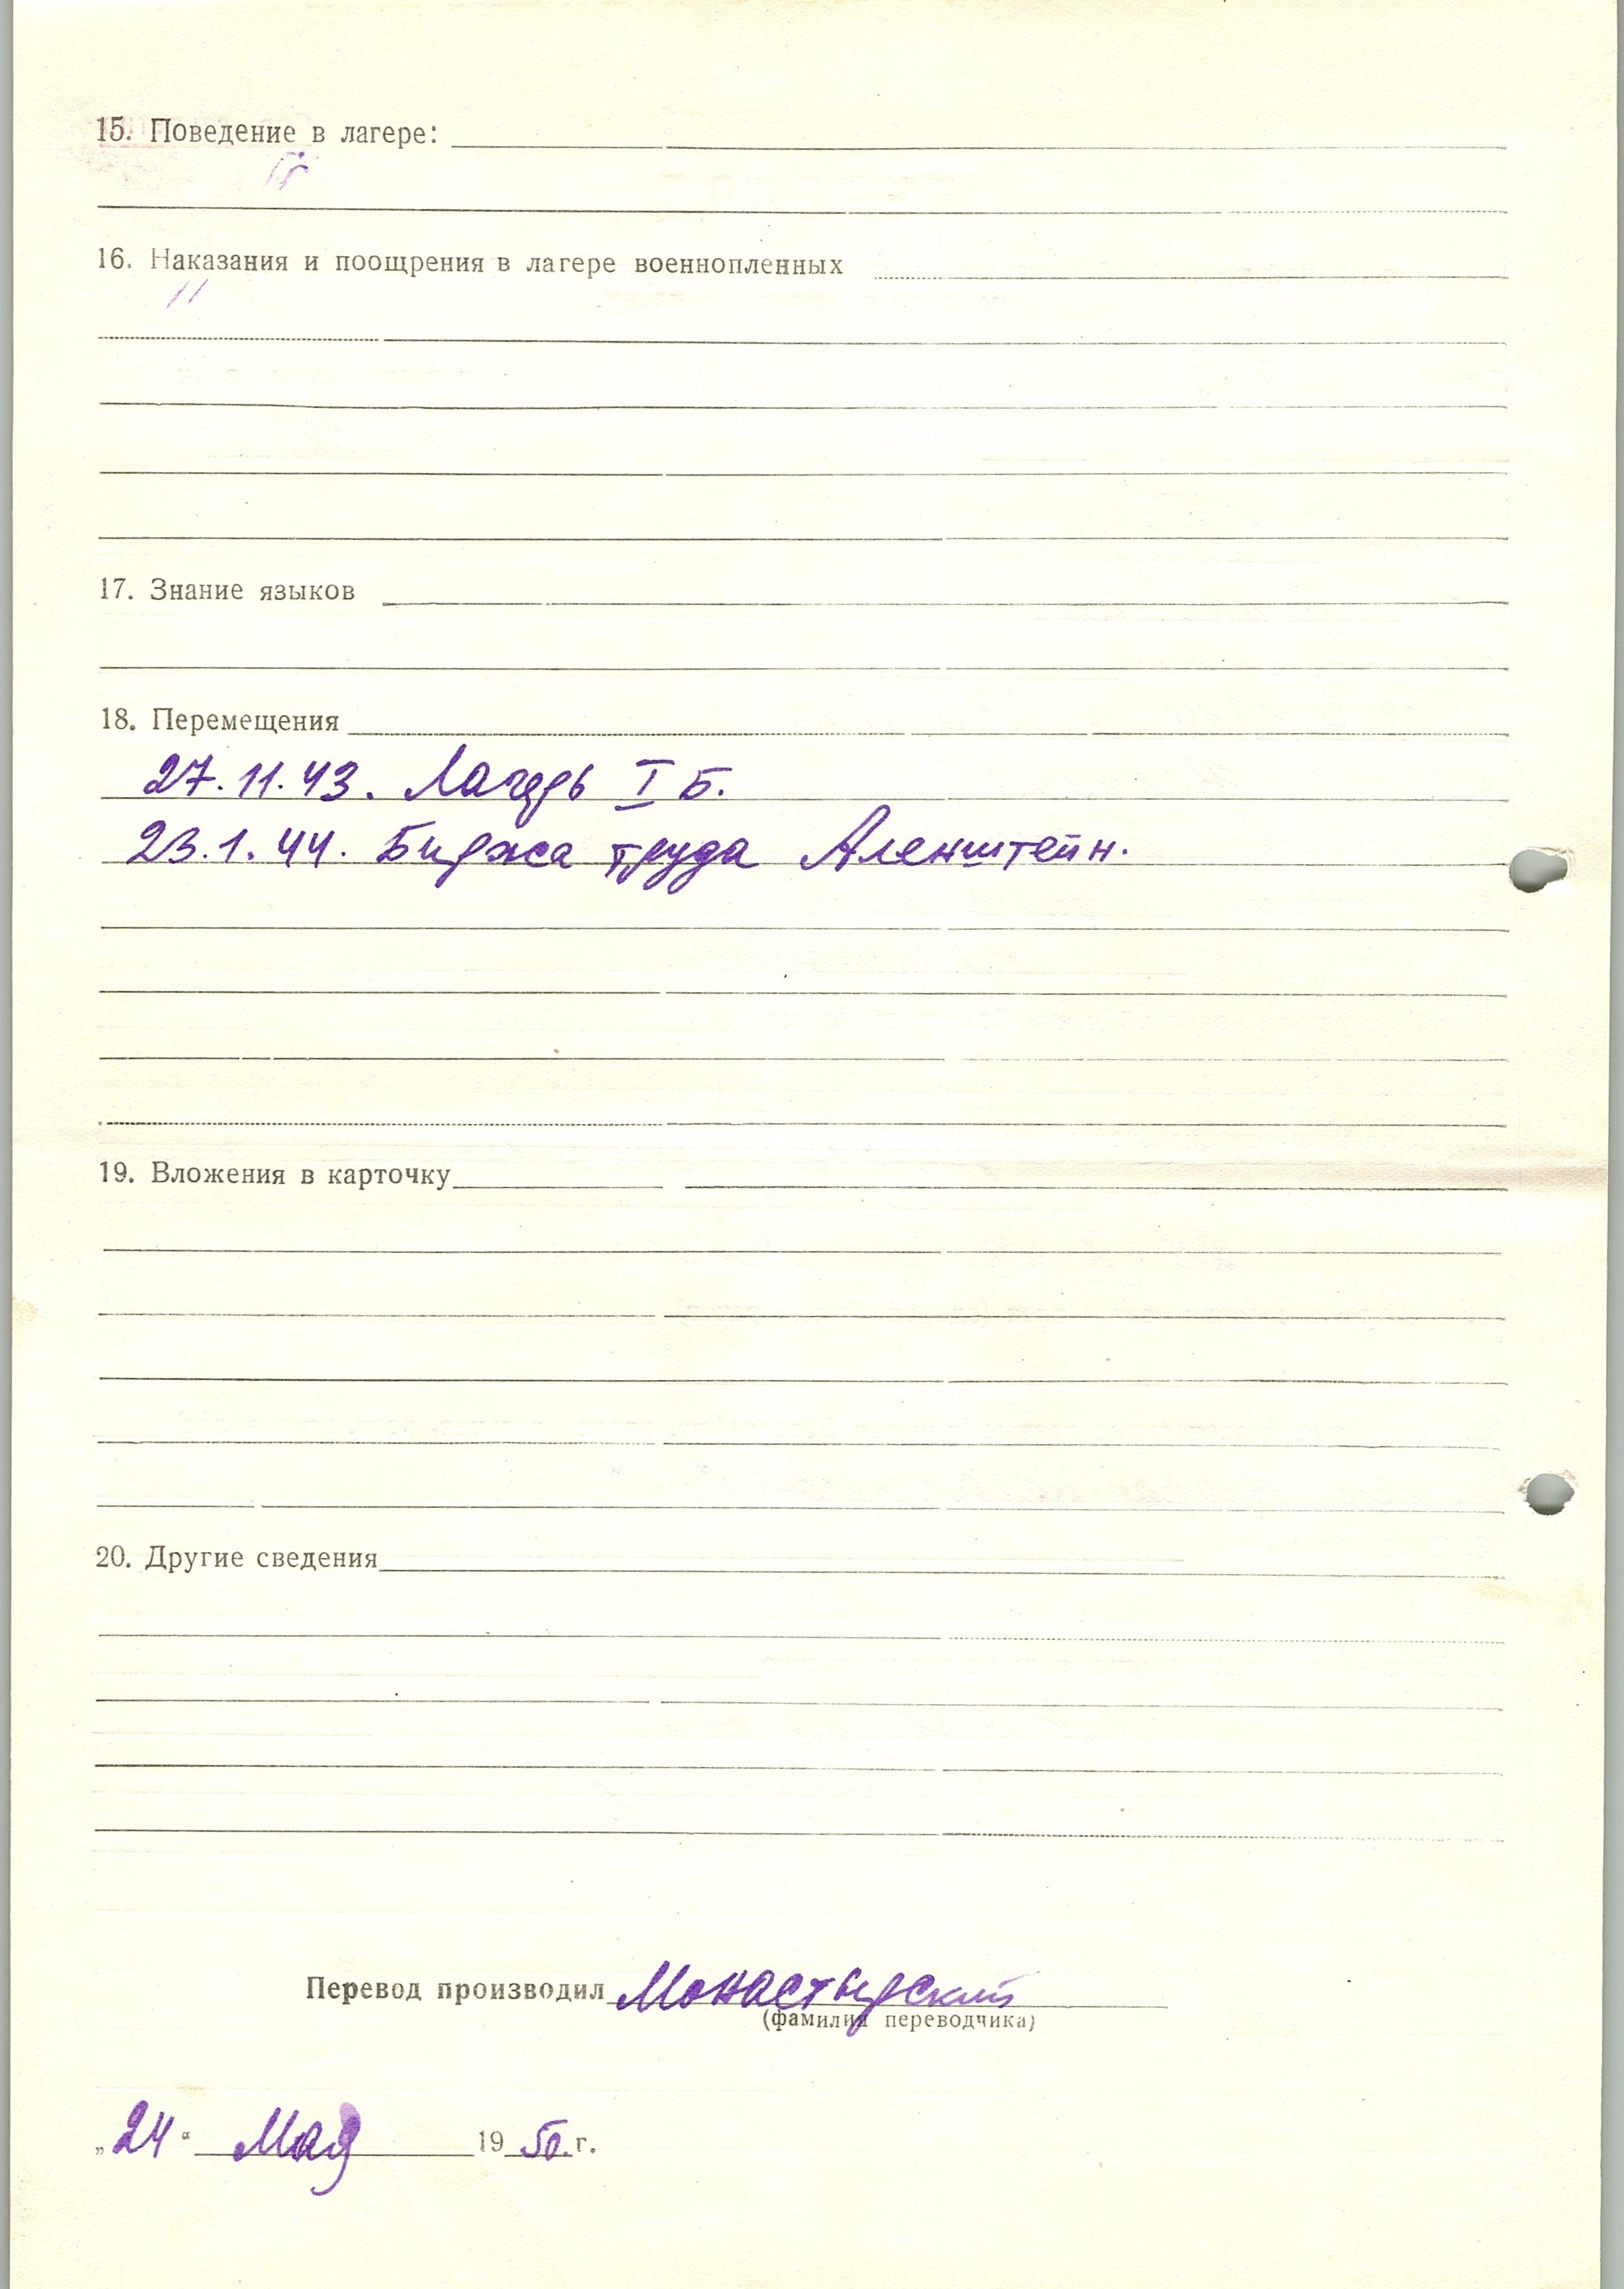 15. Поведение в лагере:
16. Наказания и поощрения в лагере военнопленных
17. Знание языков
18. Перемещения
27.11.43. Лагерь I Б.
23.1.44. Биржа труда Аленштейн.
19. Вложения в карточку
20. Другие сведения
Перевод производил Монастырский
(фамилия переводчика)
„24“ Мая 1950.г.